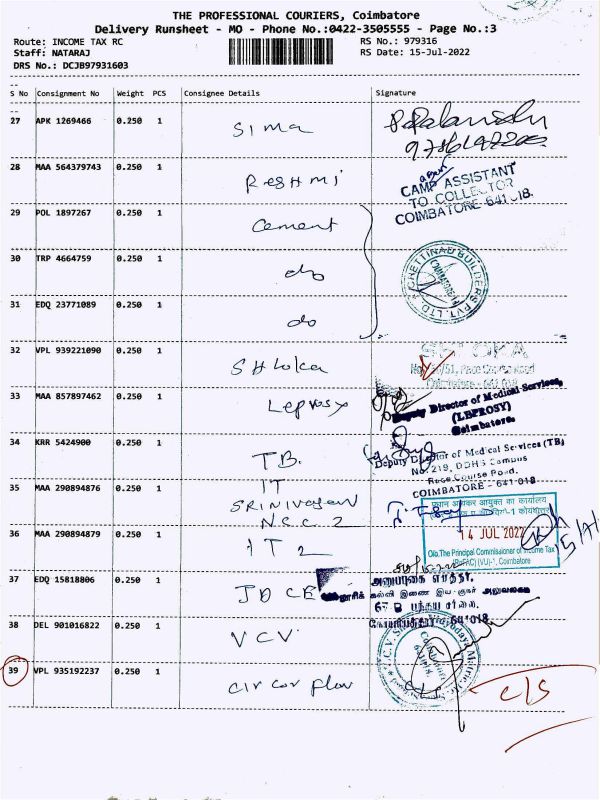 THE PROFESSIONAL COURIERS, Coimbatore
Delivery Runsheet - MO - Phone No.:0422-3505555 - Page No.:3
Route: INCOME TAX RC
RS No.: 979316
Staff: NATARAJ
RS Date: 15-Jul-2022
DRS No.: DCJB97931603
S No Consignment No Weight PCS Consignee Details Signature
27 APK 1269466 0.250 1 Sima
9786197200
28 MAA 564379743 0.250 1 Reshmi
CAMP ASSISTANT
TO COLLECTOR
COIMBATORE - 641 018.
29 POL 1897267 0.250 1 Cement
30 TRP 4664759 0.250 1 do
CHETTINAD BUILDERS PVT. LTD.
31 EDQ 23771089 0.250 1 do
32 VPL 939221090 0.250 1 Shloka
Race Course Road
Coimbatore - 641 018
33 MAA 857897462 0.250 1 Leprosy
Deputy Director of Medical Services,
(LEPROSY)
Coimbatore.
34 KRR 5424900 0.250 1 TB.
Deputy Director of Medical Services (TB)
No. 219, DDHS Campus
Race Course Road.
COIMBATORE - 641 018
35 MAA 290894876 0.250 1 IT
SRINIVASAN
N.S.C. 2
36 MAA 290894879 0.250 1 IT 2
14 JUL 2022
O/o.The Principal Commissioner of Income Tax
Coimbatore
37 EDQ 15818806 0.250 1 JDCE
67-B பந்தய சாலை,
641 018.
38 DEL 901016822 0.250 1 VCV
39 VPL 935192237 0.250 1 cir cor flow
c/s